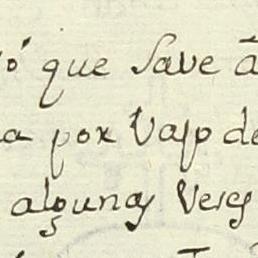 ó que save a
a por Vaso de
algunas Veses